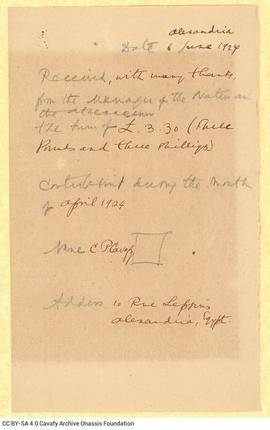 Alexandria
Date 6 June 1924
Received, with many thanks,
from the Manager of the Nation and
the Athenaeum
the sum of £. 3.30 (Three
Pounds and three shillings)
Contribution during the month
of April 1924
Name C P Cavafy
Address 10 Rue Lepsius
Alexandria, Egypt.
CC BY-SA 4.0 Cavafy Archive Onassis Foundation